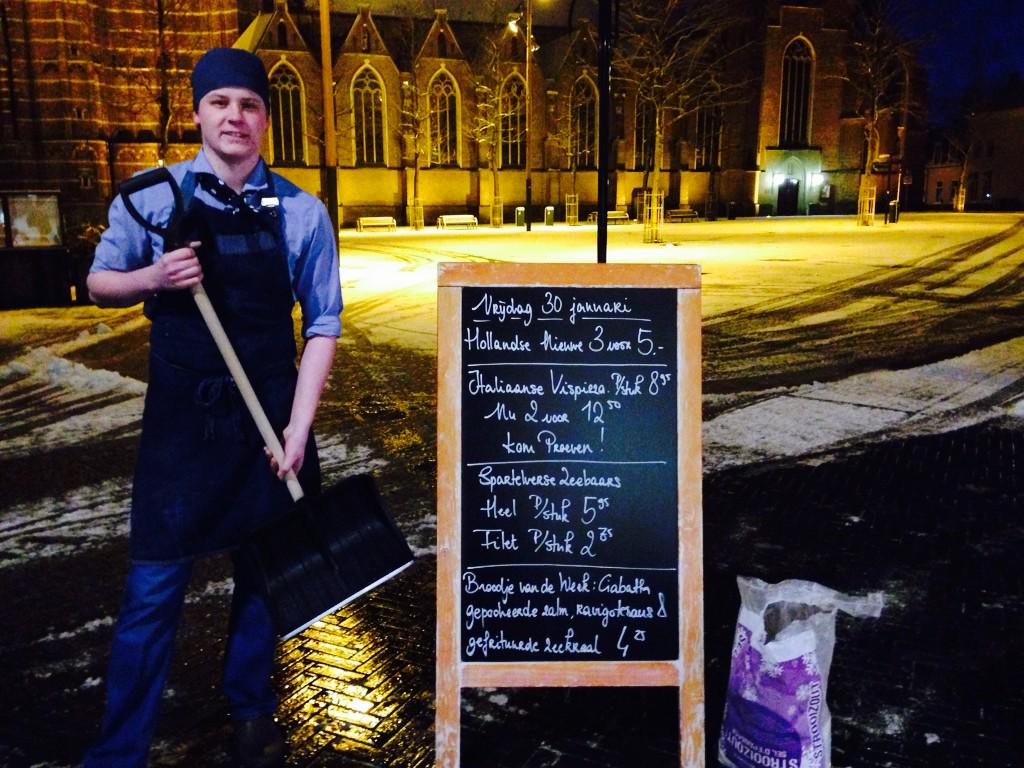 Vrijdag 30 januari
Hollandse Nieuwe 3 voor 5,-
Italiaanse Vispizza P/stuk 8⁹⁵
Nu 2 voor 12⁵⁰
kom Proeven!
Spartelverse Zeebaars
Heel P/stuk 5⁹⁵
Filet P/stuk 2⁷⁵
Broodje van de Week: Ciabatta
gepocheerde zalm, ravigotesaus &
gefrituurde zeekraal 4²⁵
STROOIZOUT
STROOIZOUT